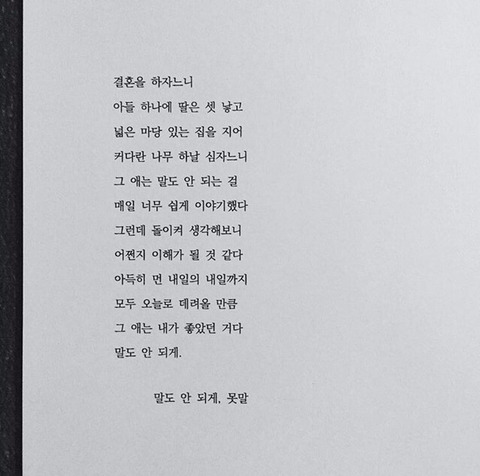 결혼을 하자느니
아들 하나에 딸은 셋 낳고
넓은 마당 있는 집을 지어
커다란 나무 하날 심자느니
그 애는 말도 안 되는 걸
매일 너무 쉽게 이야기했다
그런데 돌이켜 생각해보니
어쩐지 이해가 될 것 같다
아득히 먼 내일의 내일까지
모두 오늘로 데려올 만큼
그 애는 내가 좋았던 거다
말도 안 되게.
말도 안 되게, 못말